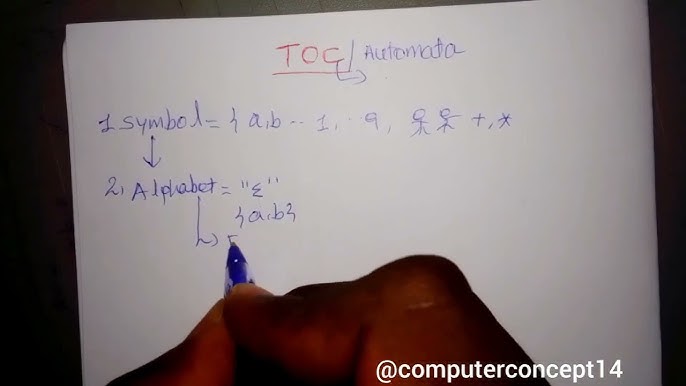 TOC/Automata
1. Symbol = { a, b -- 1, -- 9, 옷 옷 +, *
2, Alphabet = "Σ"
{a,b}
@computerconcept14